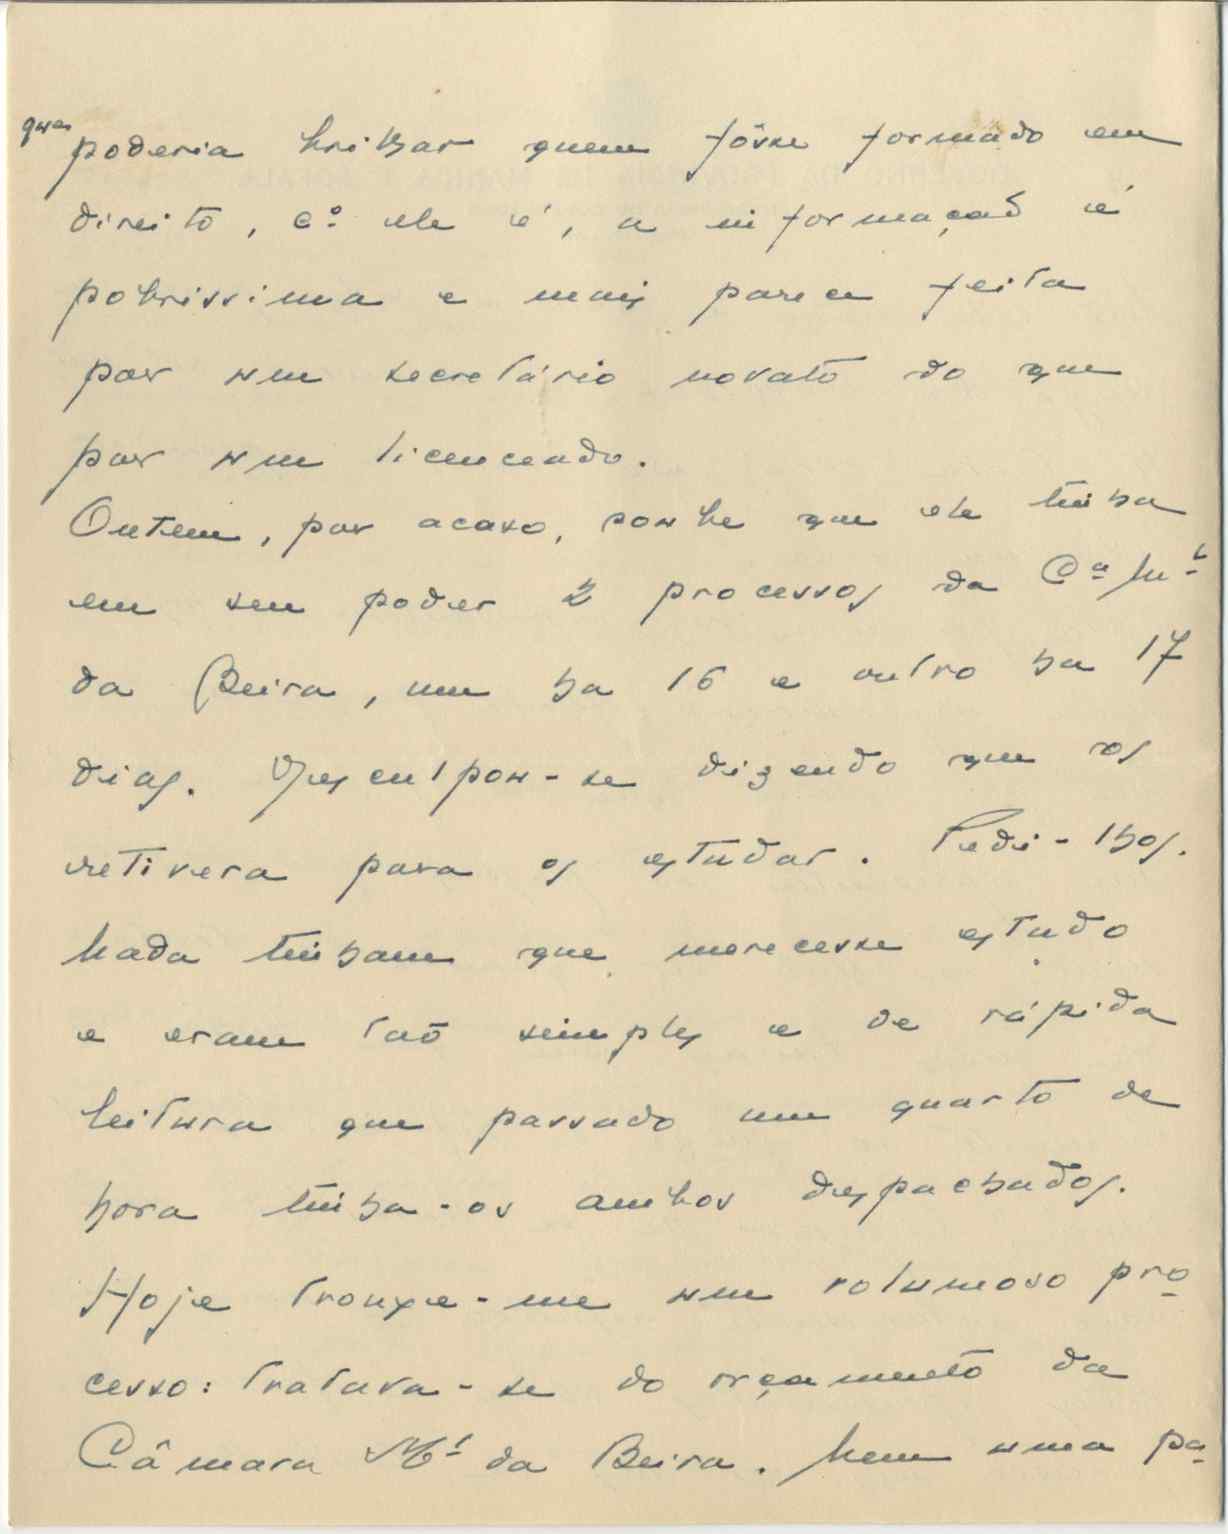 que poderia brilhar quem fôsse formado em
direito, cº ele é, a informação é
pobrissima e mais parece feita
por um secretário novato do que
por um licenceado.
Ontem, por acaso, soube que ele tinha
em seu poder 2 processos da Cª Mˡ
da Beira, um ha 16 e outro ha 17
dias. Desculpou-se dizendo que os
retivera para os estudar. Pedi-lhos.
Nada tinham que merecesse estudo
e eram tão simples e de rápida
leitura que passado um quarto de
hora tinha-os ambos despachados.
Hoje trouxe-me um volumoso pro-
cesso: tratava-se do orçamento da
Câmara Mˡ da Beira. Nem uma pa-